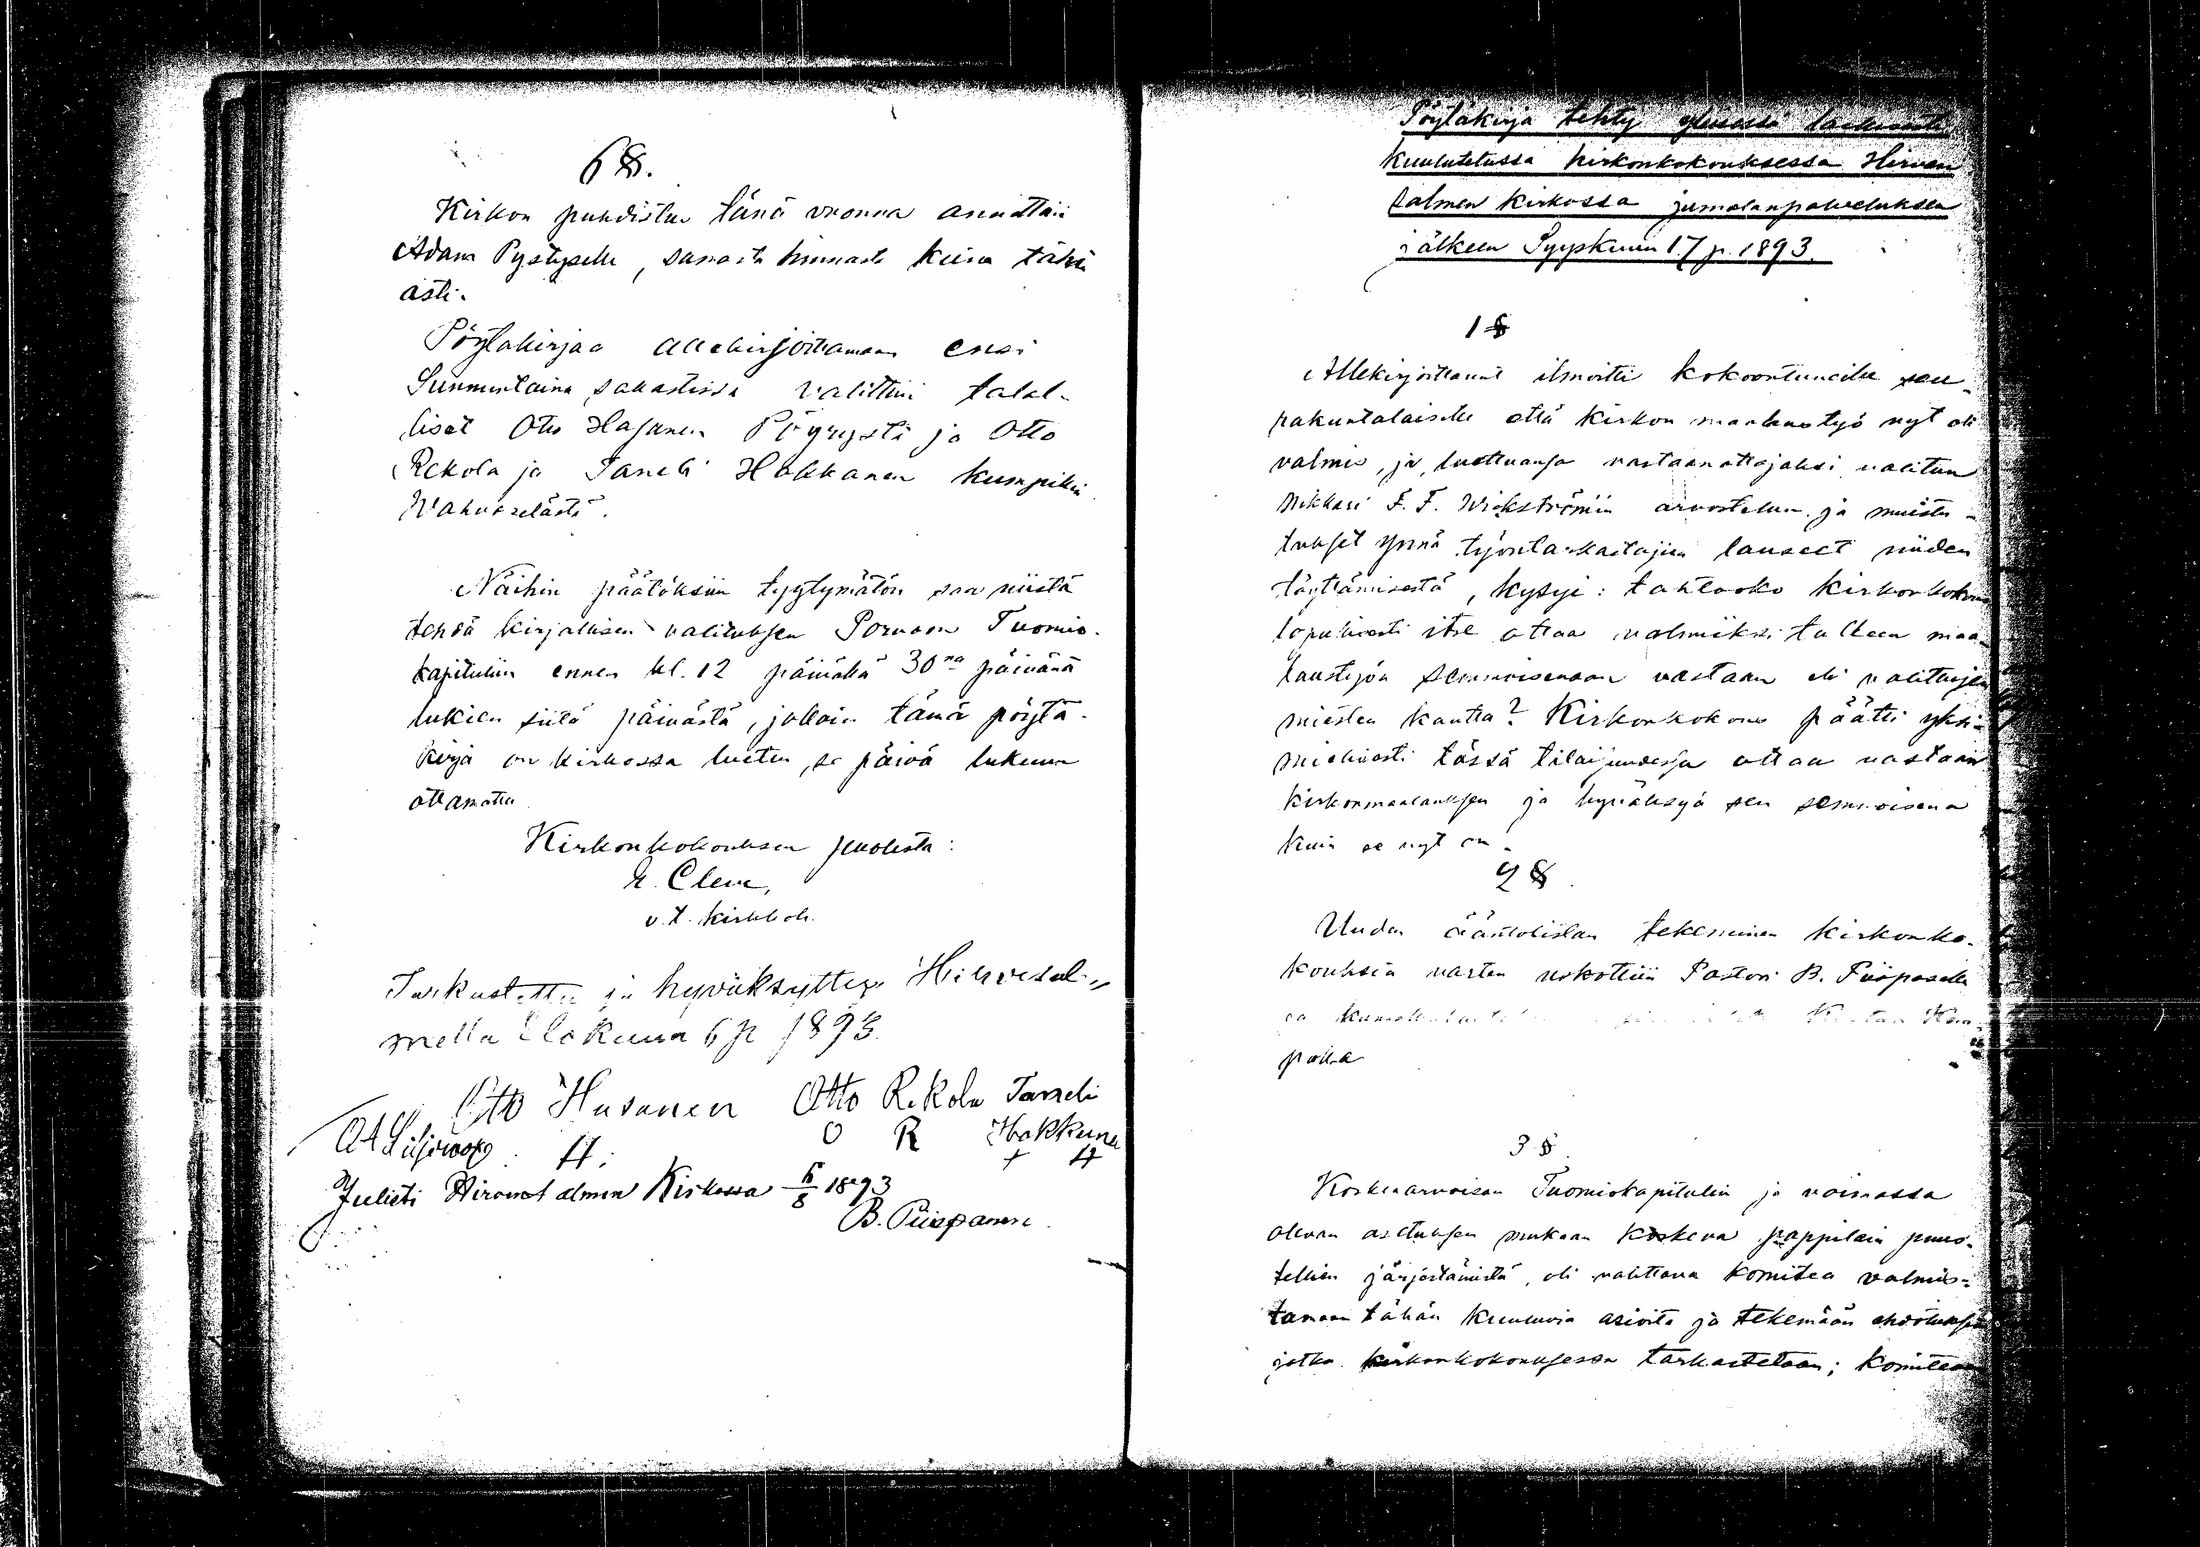 6 §.
Kirkon puhdistus tänä vuonna annettiin
Adam Pystyselle, samasta hinnasta kuin tähän
asti.
Pöytäkirjaa allekirjoittamaan ensi
Sunnuntaina sakastissa valittiin talol-
liset Otto Hasanen Pöyrystä ja Otto
Rekola ja Taneli Hakkanen kumpikin
Wahvaselästä.
Näihin päätöksiin tyytymätön saa niistä
tehdä kirjallisen valituksen Porvoon Tuomio-
kapituliin ennen kl. 12 päivällä 30na päivänä
lukien siitä päivästä, jolloin tämä pöytä-
kirja on kirkossa luettu, se päivä lukuun
ottamatta
Kirkonkokouksen puolesta:
Cleve,
v. t. kirkkoh.
Tarkastettu ja hyväksytty Hirvesal-
mella Elokuun 6 p 1893.
Otto Hasanen Otto Rekola Taneli
H. O R Hakkanen
+ H
Julisti Hirvensalmen Kirkossa 6/8 1893
B. Piispanen.
Pöytäkirja tehty yleisessä laillisesti
kuulutetussa kirkonkokouksessa Hirven
salmen kirkossa jumalanpalveluksen
jälkeen Syyskuun 17 p. 1893.
1 §
Allekirjoittanut ilmoitti kokoontuneille seu-
rakuntalaisille että kirkon maalaustyö nyt oli
valmis, ja, luettuansa vastaanottajaksi valitun
Nikkari F. F. Wickströmin arvostelun ja muistu-
tukset ynnä työntarkastajien lauseet niiden
täyttämisestä, kysyi: tahtooko kirkonkokous
lopullisesti itse ottaa valmiiksi tulleen maa-
laustyön semmoisenaan vastaan eli valittujen
miesten kautta? Kirkonkokous päätti yksi-
mielisesti tässä tilaisuudessa ottaa vastaan
kirkonmaalauksen ja hyväksyä sen semmoisena
kuin se nyt on.
2 §.
Uuden ääntölistan tekeminen kirkonko-
kouksia varten uskottiin Pastori B. Piispaselle
ja
3 §.
Korkeaarvoisan Tuomiokapitulin ja voimassa
olevan asetuksen mukaan koskeva pappilain puus-
tellien järjestämistä, oli valittava komitea valmis-
tamaan tähän kuuluvia asioita ja tekemään ehdotuksia
jotka kirkonkokouksessa tarkastetaan; komiteaan